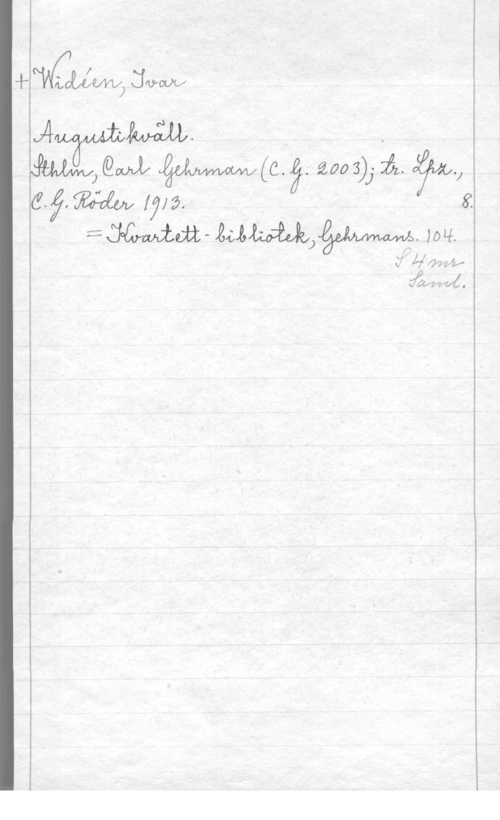 + Widéen, Ivar
Augustikväll.
Sthlm, Carl Gehrman (C. G. 2003); tr. Lpz.,
C. G. Röder 1913. 8.
= Kvartett-bibliotek, Gehrmans. 104.
f 4 mr
Saml.